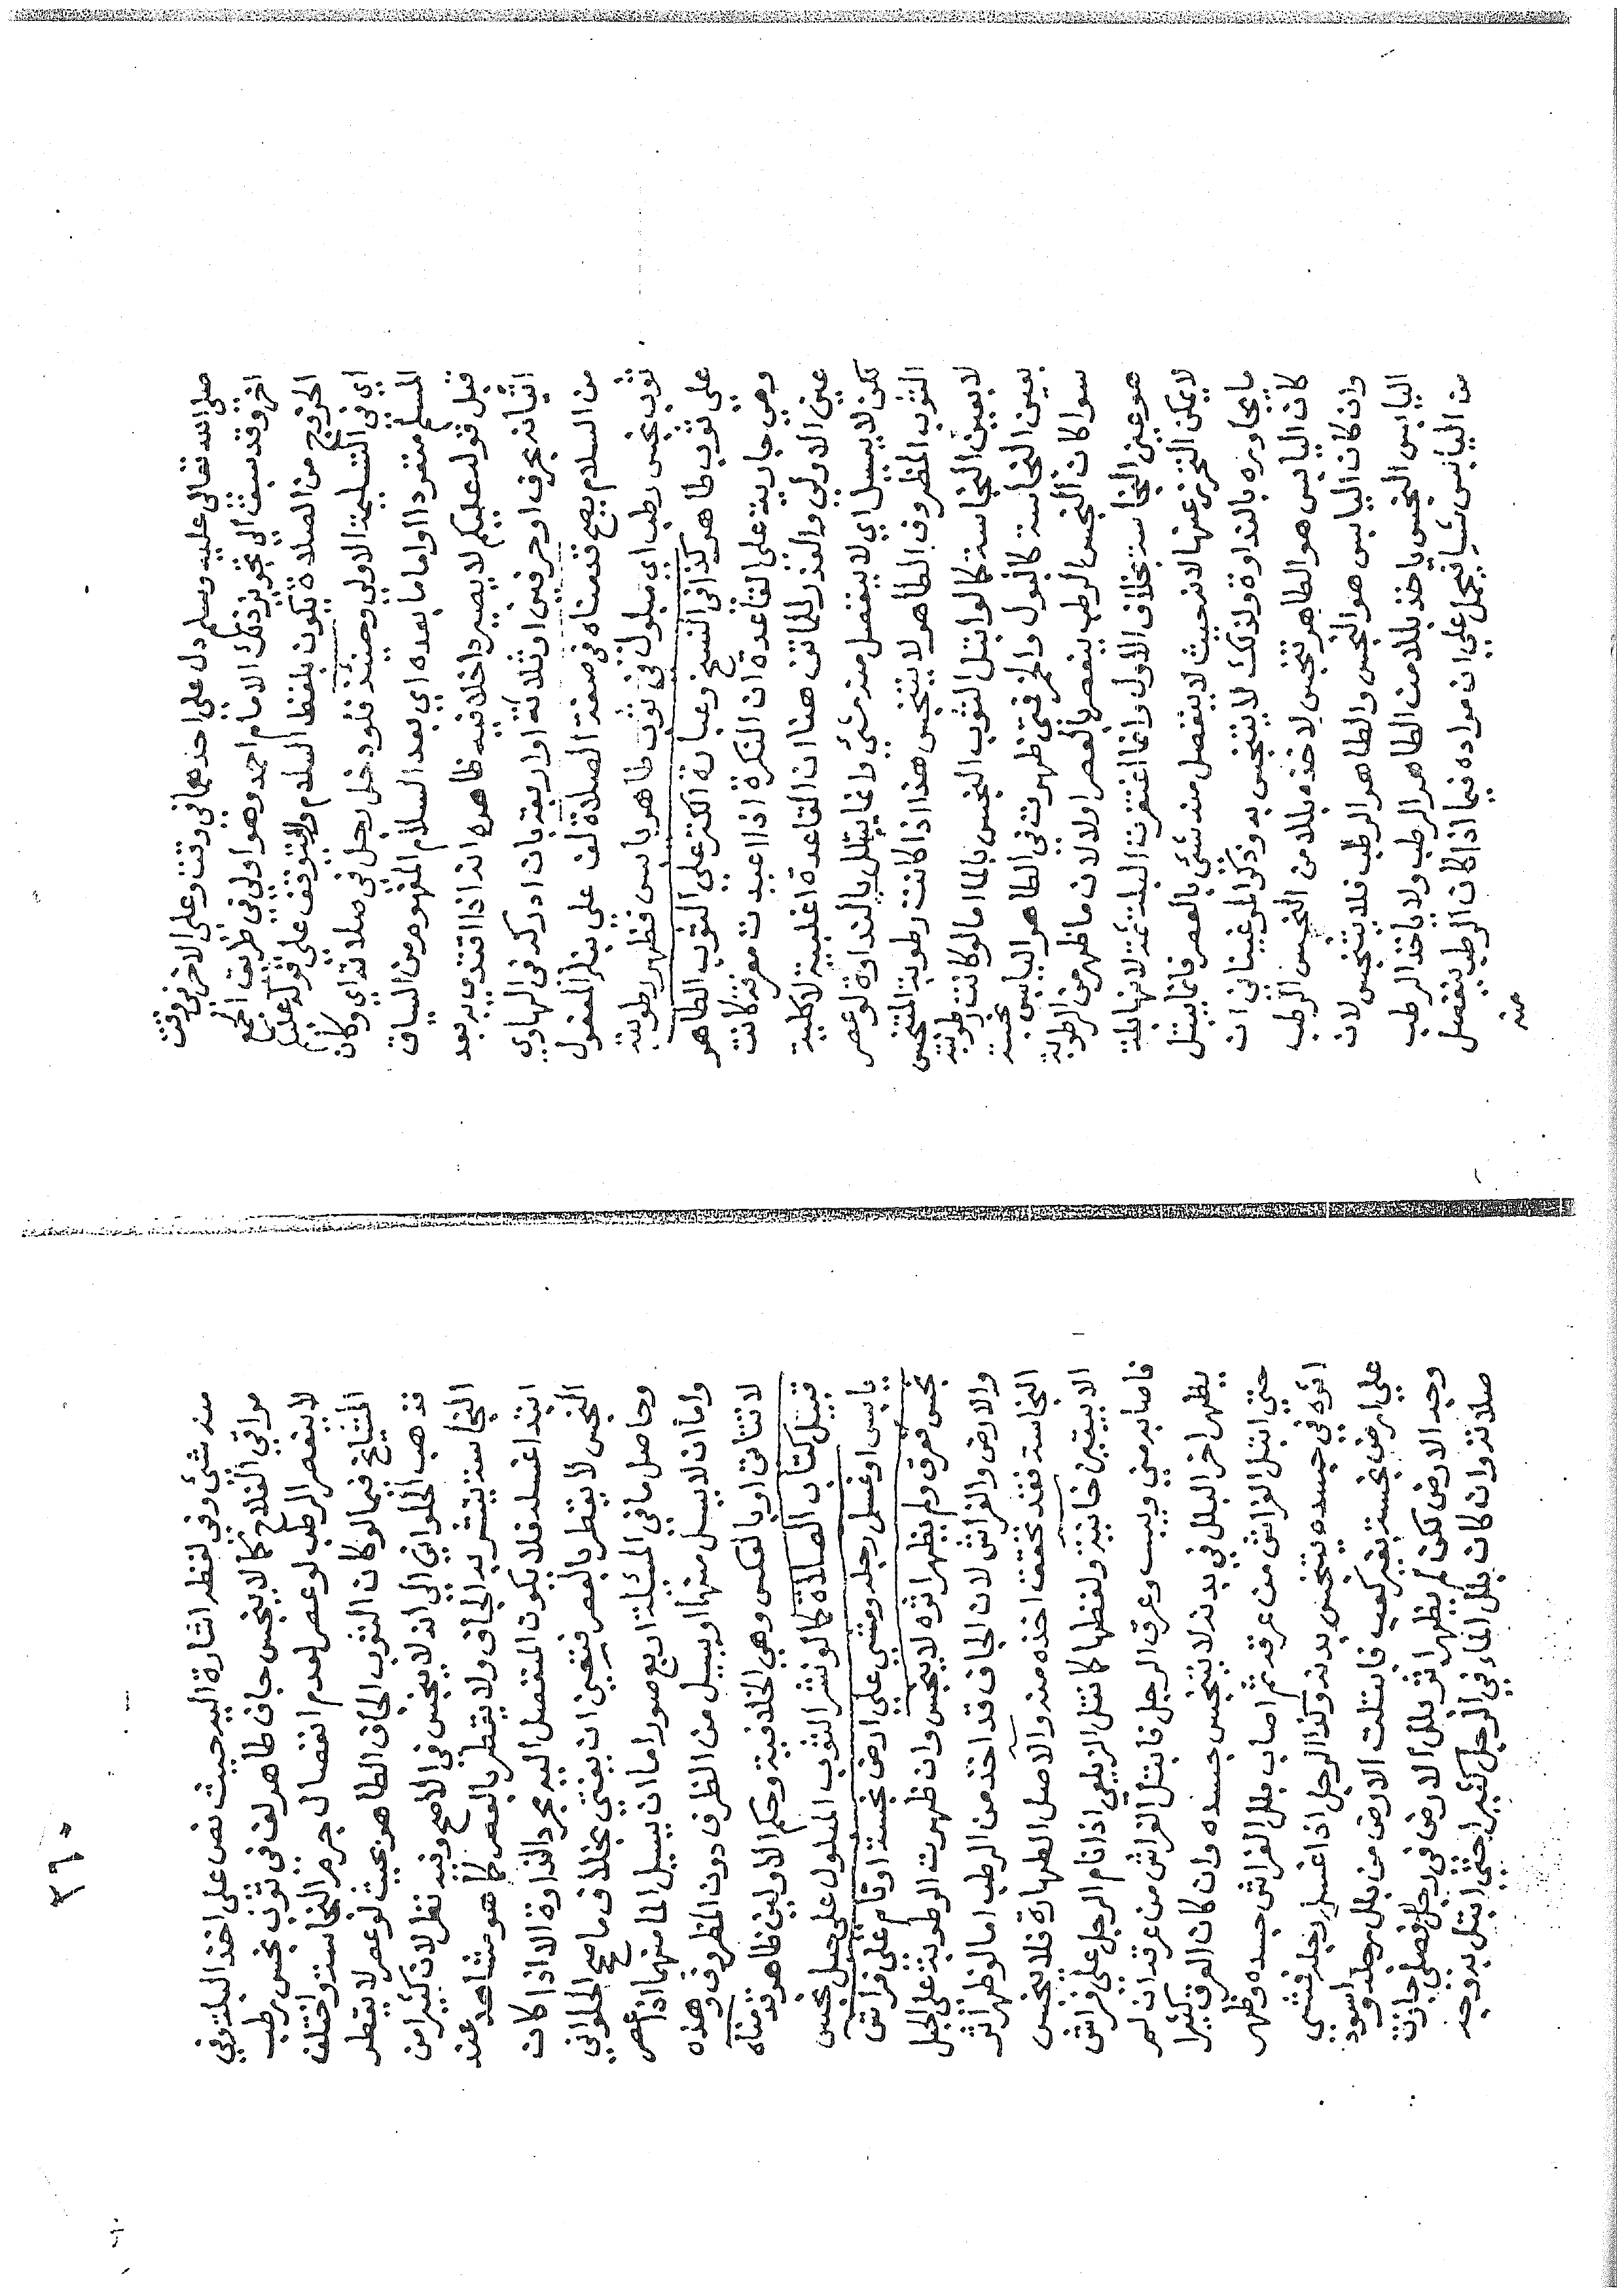 صلى الله تعالى عليه وسلم دل على احدهما في وقت وعلى الاخر في وقت
اخر وقد سبق الى تجويز ذلك الامام احمد وهو اولى في طريق الجمع
الخروج من الصلاة يكون بلفظ السلام ولا يتوقف على قوله عليكم
اي في التسليمة الاولى وحينئذ فلو دخل رجل في صلاته اي وكان
المسلم منفردا او اماما بعده اي بعد السلام المفهوم من السياق
قبل قوله عليكم لا يصير داخلا فيه ظاهره انه اذا اقتدى به بعد
اثنا نه بحرف او حرفين او ثلاثة او اربعة بان ادركه في الهاوي
من السلام يصح قدمناه في صفة الصلاة لف على بناء المفعول
ثوب نجس رطب اي مبلول في ثوب طاهر يابس فظهر رطوبته
على ثوب طاهر كذا في النسخ وعبارة الكنز على الثوب الطاهر
وهي جارية على القاعدة ان النكرة اذا اعيدت معرفة كانت
عين الاولى والعذر للماتن هنا ان القاعدة اغلبية لا كلية
لكن لا يسيل اي لا ينفصل منه شئ وانما يبتل بالنداوة لو عصر
الثوب المظروف الطاهر لا يتنجس هذا اذا كانت رطوبة المتنجس
لا بعين النجاسة كما لو ابتل الثوب النجس بالما اما لو كانت رطوبته
بعين النجاسة كالبول والخمر فمتى ظهرت في الطاهر اليابس نجسته
سوا كان النجس الرطب ينعصر بالعصر او لا لان ما ظهر من الرطوبة
هو عين النجاسة بخلاف الاول وانما اغتفرت البلة ثمة لانها بلة
لا يمكن التحرز عنها لانه حيث لا ينفصل منه شئ بالعصر فانما يبتل
ما يجاوره بالنداوة ولذلك لا يتنجس به وذكر المرغيناني ان
كان اليابس هو الطاهر تنجس لاخذه بللا من النجس الرطب
وان كان اليابس هو النجس والطاهر الرطب فلا يتنجس لان
اليابس النجس ياخذ بللا من الطاهر الرطب ولا ياخذ الرطب
من اليابس شيا فيحمل على ان مراده فيما اذا كان الرطب ينفصل
منه
٢٩٥
منه شئ وفي لفظه اشارة اليه حيث نص على اخذ البلة وفي
مراقي الفلاح كما لا ينجس جاف طاهر لف في ثوب نجس رطب
لا ينعصر الرطب لو عصر لعدم انفصال جرم النجاسة واختلف
المشايخ فيما لو كان الثوب الجاف الطاهر بحيث لو عصر لا يقطر
فذهب الحلواني الى انه لا ينجس في الاصح وفيه نظر لان كثيرا من
النجاسة يتشربه الجاف ولا يقطر بالعصر كما هو مشاهد عند
ابتداء غسله فلا يكون المنفصل اليه مجرد النداوة الا اذا كان
النجس لا يقطر بالعصر فتعين ان يفتى بخلاف ما صحح الحلواني
وحاصل ما في المسئلة اربع صور اما ان يسيل الما منهما اذا عصر
واما ان لا يسيل منهما او يسيل من الظرف دون المظروف وهذه
لا تتاتى او بالعكس وهي الخلافية وحكم الاولين ظاهر قدمناه
قبيل كتاب الصلاة كما لو نشر الثوب المبلول على حبل نجس
يابس او غسل رجله ومشى على ارض نجسة او نام على فراش
نجس فعرق ولم يظهر اثره لا ينجس وان ظهرت الرطوبة على الحبل
والارض والفراش لان الجاف قد اخذ من الرطب اما لو ظهر اثر
النجاسة فقد تحقق اخذه منه والاصل الطهارة فلا ينجس
الا بيقين خانية ولفظها كما نقل الزيلعي اذا نام الرجل على فراش
فاصابه مني ويبس وعرق الرجل فابتل الفراش من عرقه ان لم
يظهر اثر البلل في بدنه لا يتنجس جسده وان كان العرق كثيرا
حتى ابتل الفراش من عرقه ثم اصاب بلل الفراش جسده وظهر
اثره في جسده يتنجس بدنه وكذا الرجل اذا غسل رجله فمشى
على ارض نجسة بغير كعب فابتلت الارض من بلل رجله واسود
وجه الارض لكن لم يظهر اثر بلل الارض في رجله فصلى جازت
صلاته وان كان بلل الماء في الرجل كثيرا حتى ابتل به وجه